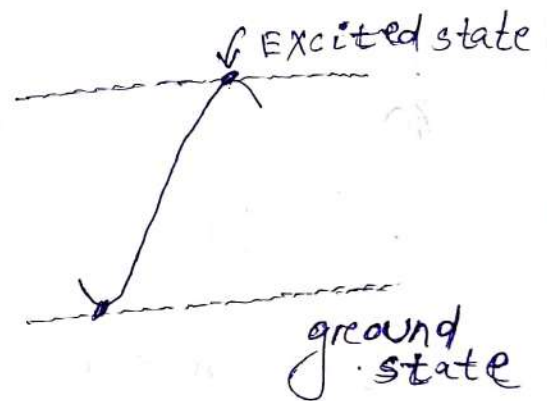 Excited state
ground
state